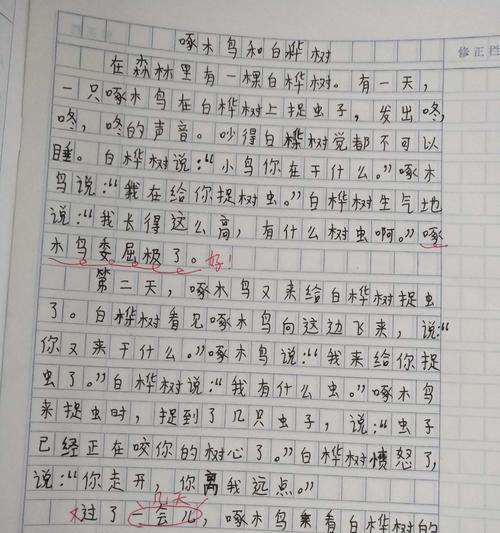 修正栏
啄木鸟和白桦树
在森林里有一棵白桦树。有一天，
一只啄木鸟在白桦树上捉虫子，发出咚，
咚，咚的声音。吵得白桦树觉都不可以
睡。白桦树说：“小鸟你在干什么。”啄木
鸟说：“我在给你捉树虫。”白桦树生气地
说：“我长得这么高，有什么树虫啊。”啄
木鸟委屈极了。好！
第二天，啄木鸟又来给白桦树捉虫
了。白桦树看见啄木鸟向这边飞来，说：“
你又来干什么。”啄木鸟说：“我来给你捉
虫了。”白桦树说：“我有什么虫。”啄木鸟
来捉虫时，捉到了几只虫子，说：“虫子
已经正在咬你的树心了。”白桦树愤怒了，
说：“你走开，你离我远点。”
几天
过了一会儿，啄木鸟来看白桦树的